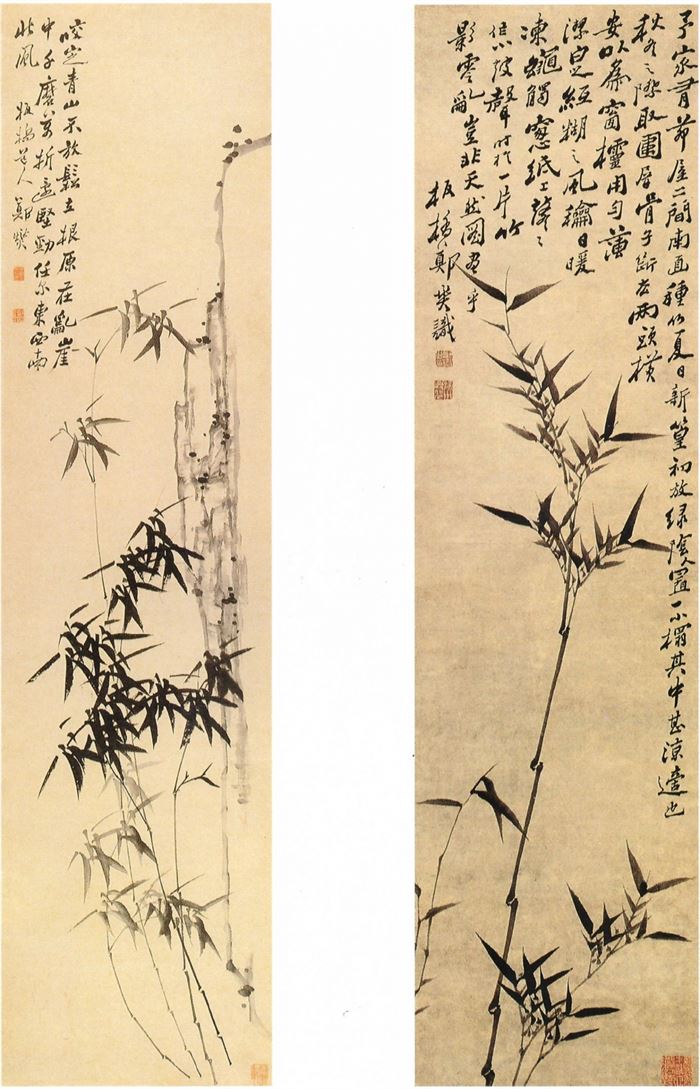 予家有茆屋二間南面種竹夏日新篁初放緑陰置一小榻其中甚涼適也
秋冬之際取圍屏骨子斷去兩頭橫
安以為窗櫺用勻薄
潔白紙糊之風和日暖
凍蠅觸窓紙上鼕々
作小鼓聲時於一片竹
影零亂豈非天然圖畫乎
板橋鄭燮識
咬定青山不放鬆立根原在亂崖
中千磨萬折還堅勁任尔東西南
北風 板橋道人鄭燮